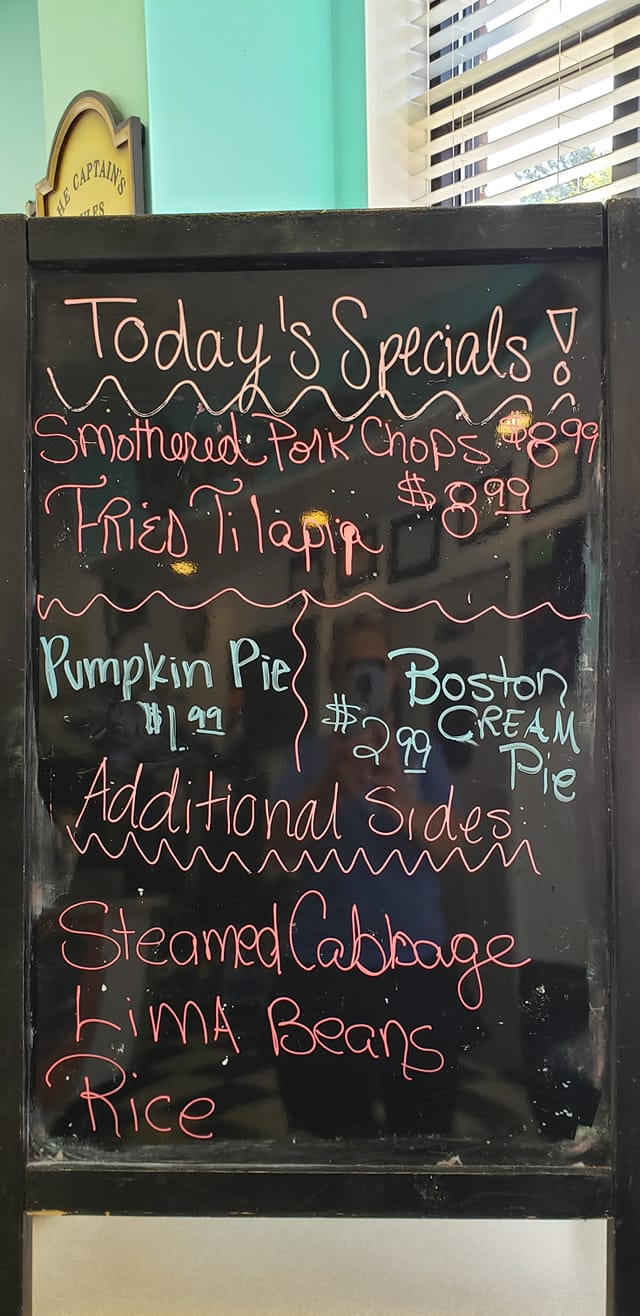 THE CAPTAIN'S
Today's Specials!
Smothered Pork Chops $8.99
Fried Tilapia $8.99
Pumpkin Pie
$1.99
Boston
CREAM
Pie
$2.99
Additional Sides
Steamed Cabbage
Lima Beans
Rice